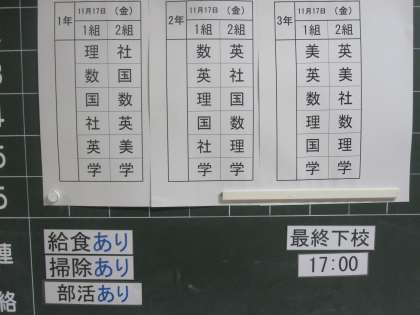 1年 11月17日 (金) 2年 11月17日 (金) 3年 11月17日 (金)
1組 2組 1組 2組 1組 2組
理 社 数 英 美 英
3 数 国 英 社 英 美
4 国 数 理 国 数 社
社 英 国 数 理 数
5 英 美 社 理 国 理
5 学 学 学 学 学 学
連 給食あり 最終下校
掃除あり 17:00
絡 部活あり